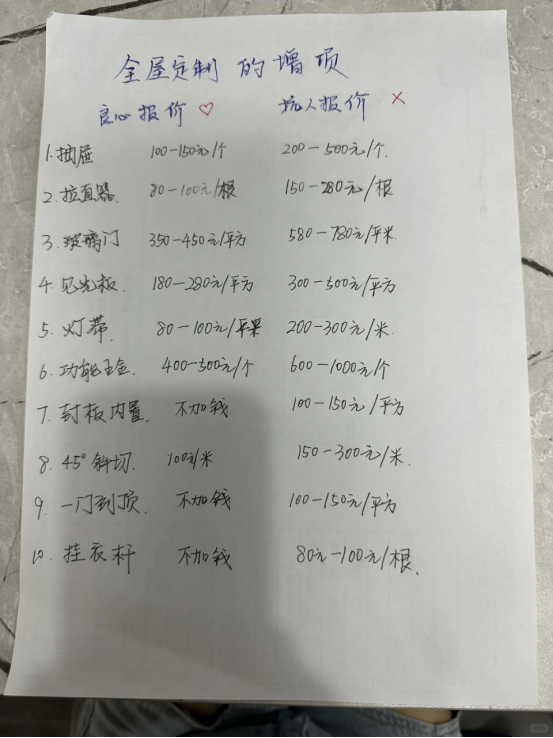 全屋定制 的增项
良心报价 ♡ 坑人报价 ×
1. 抽屉 100-150元/个 200-500元/个.
2. 拉直器. 80-100元/根 150-280元/根
3. 玻璃门 350-450元/平方 580-780元/平米
4. 见光板. 180-280元/平方 300-500元/平方
5. 灯带. 80-100元/米 200-300元/米.
6. 功能五金. 400-500元/个 600-1000元/个
7. 封板内置. 不加钱 100-150元/平方
8. 45°斜切. 100元/米 150-300元/米.
9. 一门到顶. 不加钱 100-150元/平方
10. 挂衣杆 不加钱 80元-100元/根.